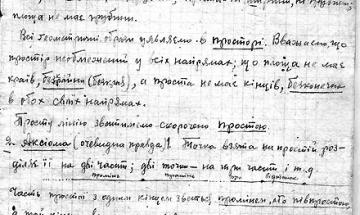 площа не має грубини.
Всі геометричні образи уявляємо в просторі. Вважаємо, що
простір необмежений у всіх напрямах; що площа не має
країв, безкрайна (безкрая), а проста не має кінців, безконечна
в обох своїх напрямах.
Просту лінію зватимемо скорочено простою.
9. Аксіома (очевидна правда). Точка взята на простій роз-
діляє її на дві части; дві точки — на три части і т.д.
Часть простої з одним кінцем зветься промінем, або півпростою